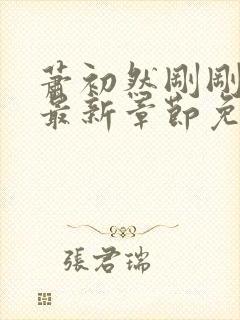 蕭初然剛剛
最新章節免
張君瑞